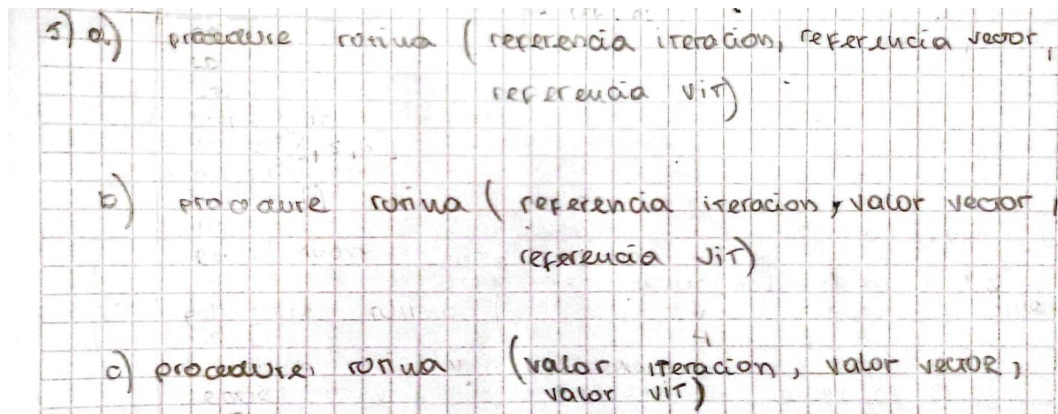 5) a) procedure rutina (referencia iteracion, referencia vector,
referencia vit)
b) procedure rutina (referencia iteracion, valor vector,
referencia vit)
c) procedure rutina (valor iteracion, valor vector,
valor vit)